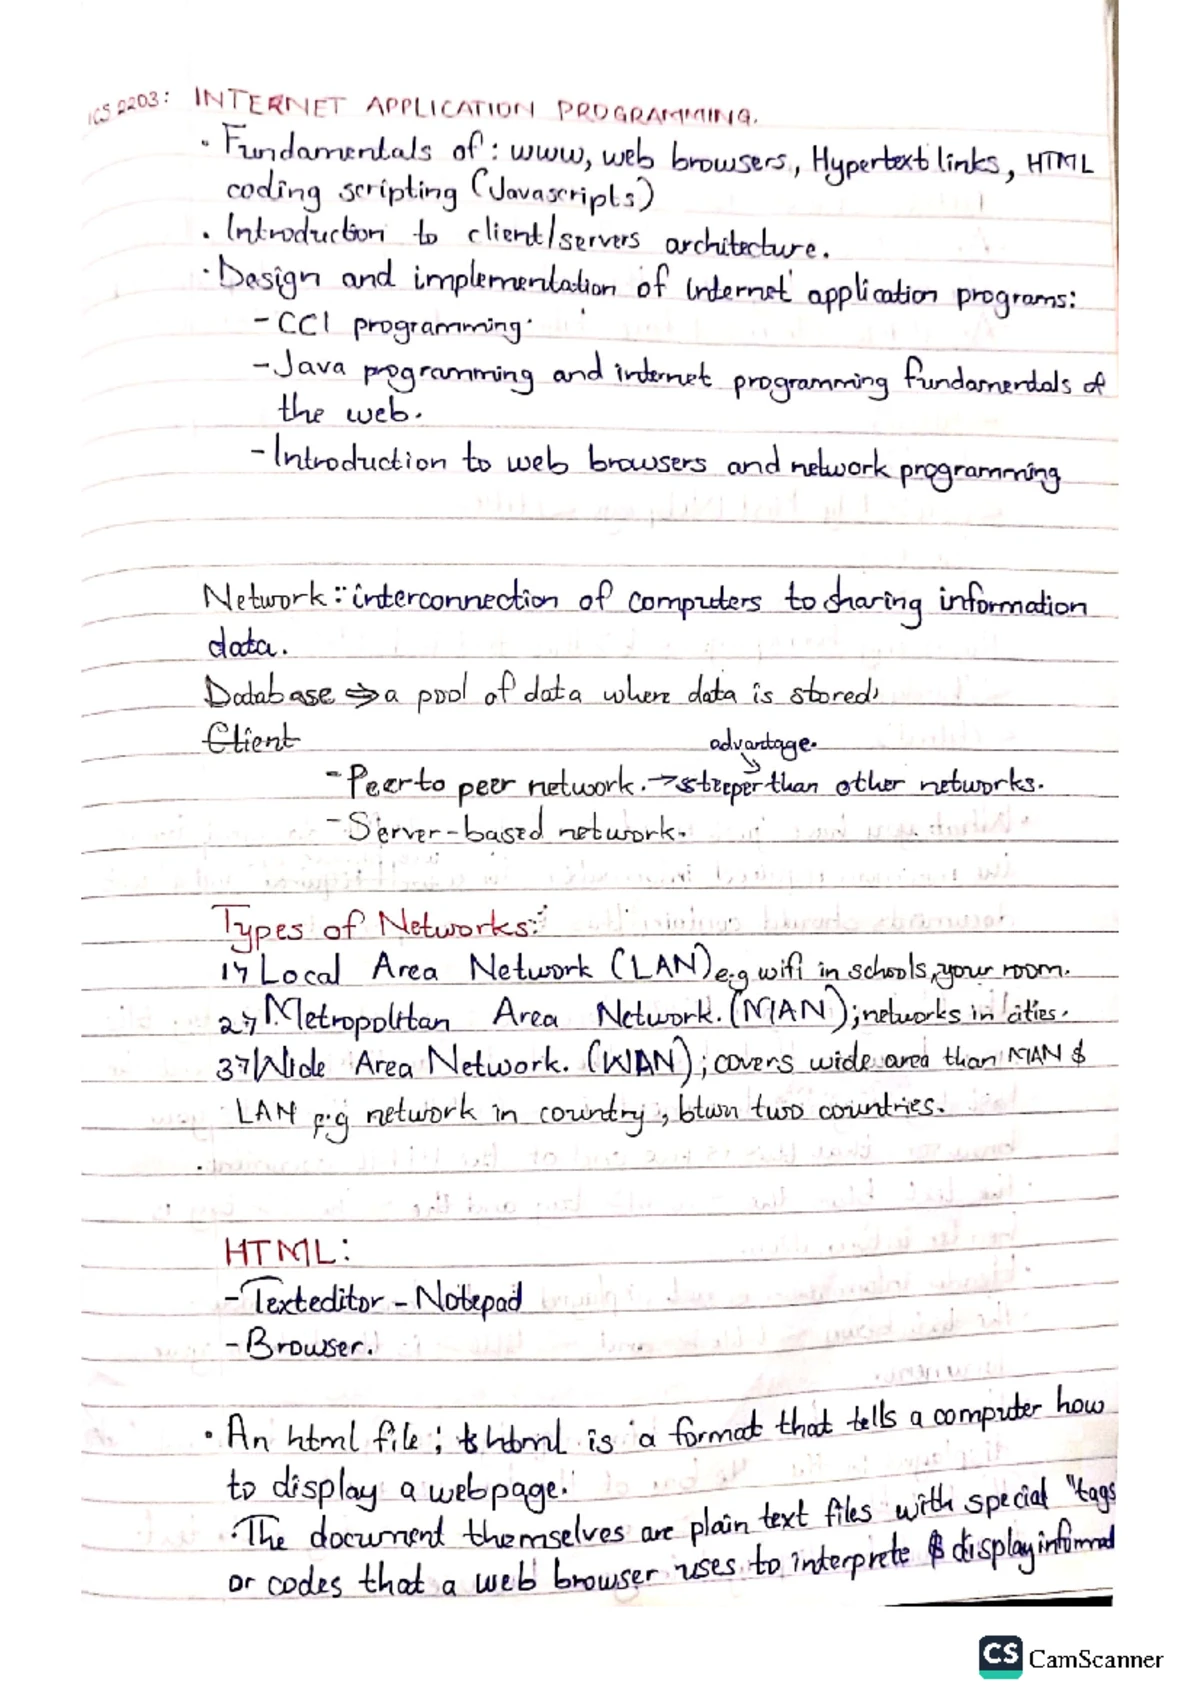 ICS 2203: INTERNET APPLICATION PROGRAMMING.
· Fundamentals of: www, web browsers, Hypertext links, HTML
coding scripting (Javascripts)
· Introduction to client/servers architecture.
· Design and implementation of internet application programs:
- CCI programming.
- Java programming and internet programming fundamentals of
the web.
- Introduction to web browsers and network programming
Network:- interconnection of computers to sharing information
data.
Database => a pool of data where data is stored.
Client
advantage.
- Peer to peer network. → than other networks.
- Server-based network.
Types of Networks:-
1> Local Area Network (LAN) e.g wifi in schools, your room.
2> Metropolitan Area Network. (MAN); networks in cities.
3> Wide Area Network. (WAN); covers wide area than MAN &
LAN e.g network in country, btwn two countries.
HTML:
- Texteditor - Notepad
- Browser.
· An html file; html is a format that tells a computer how
to display a webpage.
· The document themselves are plain text files with special "tags
or codes that a web browser uses to interprete & display informat
CS CamScanner